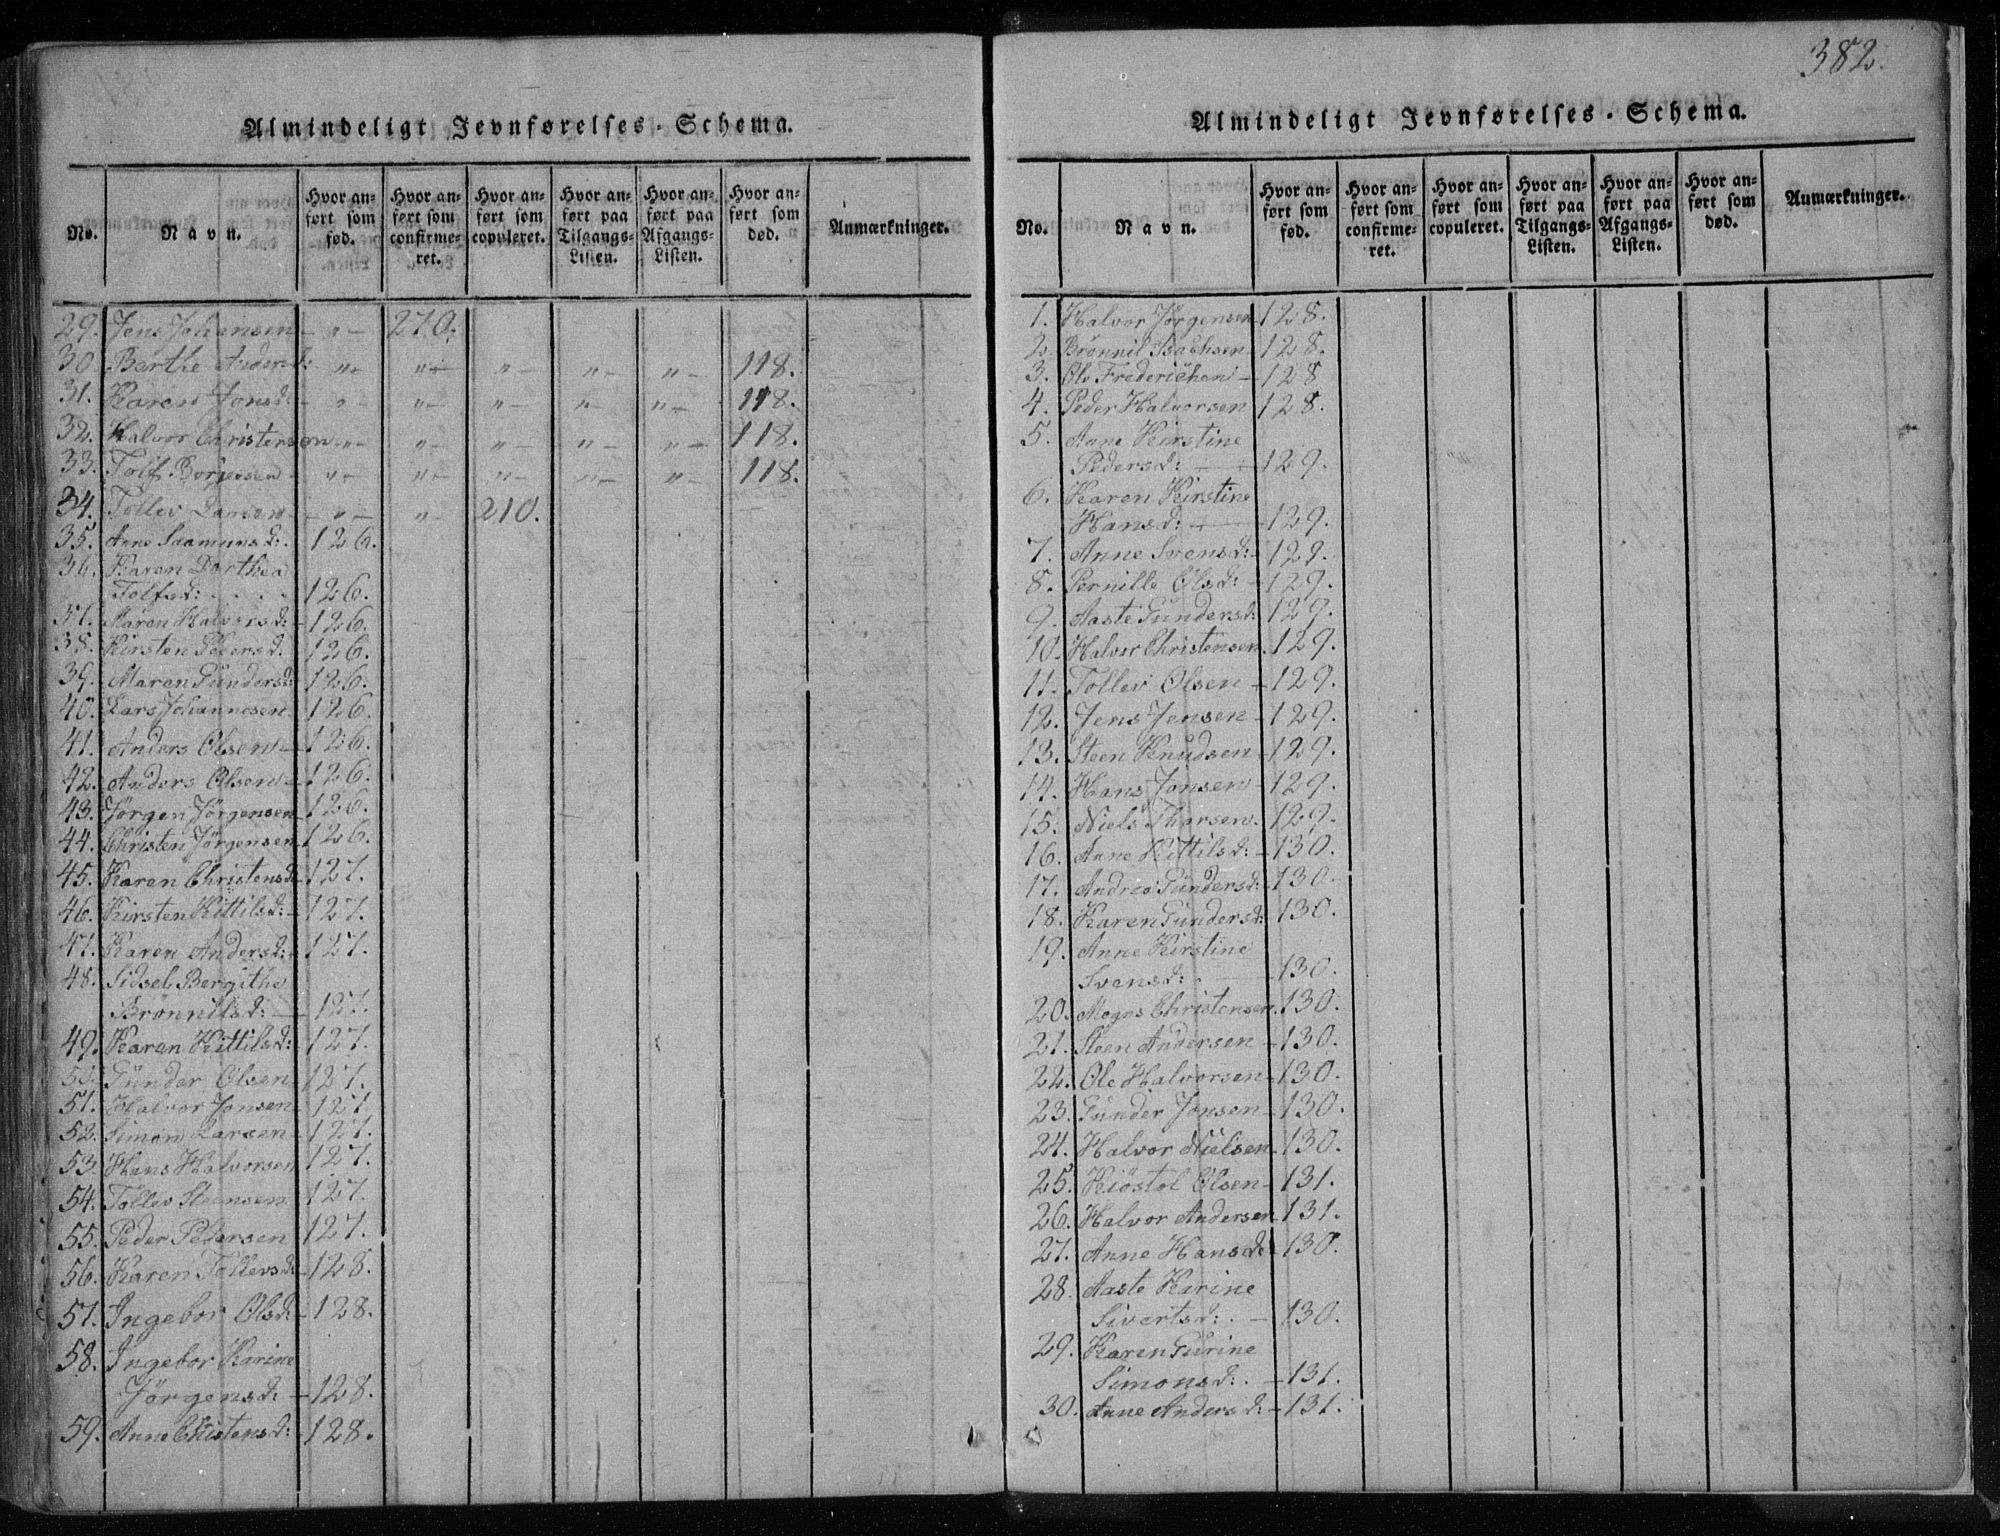 Almindeligt Jevnførelses-Schema.
No. Navn. Hvor anført som fød. Hvor anført som confirmeret. Hvor anført som copuleret. Hvor anført paa Tilgangs-Listen. Hvor anført paa Afgangs-Listen. Hvor anført som død. Anmærkninger.
29. Jens Johansen — „ — 270.
30. Berthe Andersd: „ — „ — „ — „ — „ — 118.
31. Karen Jonsd: „ — „ — „ — „ — „ — 118.
32. Halvor Christensen „ — „ — „ — „ — „ — 118.
33. Tolf „ — „ — „ — „ — „ — 118.
34. Tollev Larsen — „ — „ 210.
35. Anne Saamunsd: 126.
36. Karen Dorthea
Tolfsd: . . . . 126.
37. Maren Halvorsd: 126.
38. Kirsten Pedersd. 126.
39. Maren Gundersd: 126.
40. Lars Johannesen 126.
41. Anders Olsen — 126.
42. Anders Olsen — 126.
43. Jørgen Jørgensen 126.
44. Christen Jørgensen 126.
45. Karen Christensd 127.
46. Kirsten Kittilsd: 127.
47. Karen Andersd: 127.
48. Sidsel Bergithe
Brønnilsd: — 127.
49. Karen Kittilsd: 127.
50. Gunder Olsen 127.
51. Halvor Jonsen 127.
52. Simon Larsen — 127.
53. Hans Halvorsen 127.
54. Tollev Steensen 127.
55. Peder Pedersen 127.
56. Karen Tollevsd: 128.
57. Ingebor Olsd: 128.
58. Ingebor Karine
Jørgensd: — 128.
59. Anne Christensd: 128.
382.
Almindeligt Jevnførelses-Schema.
No. Navn. Hvor anført som fød. Hvor anført som confirmeret. Hvor anført som copuleret. Hvor anført paa Tilgangs-Listen. Hvor anført paa Afgangs-Listen. Hvor anført som død. Anmærkninger.
1. Halvor Jørgensen 128.
2. Brønnil Isachsen 128.
3. Ole Frederichsen — 128
4. Peder Halvorsen 128.
5. Anne Kirstine
Pedersd: — 129.
6. Karen Kirstine
Hansd: — 129.
7. Anne Svensd: 129.
8. Pernille Olsd: — 129.
9. Aaste Gundersd: 129.
10. Halvor Christensen. 129.
11. Tollev Olsen — 129.
12. Jens Jensen — 129.
13. Steen Knudsen — 129.
14. Hans Jonsen — 129.
15. Niels Thorsen. 129.
16. Anne Kittilsd: — 130.
17. Andrea Gundersd: 130.
18. Karen Gundersd: 130.
19. Anne Kirstine
Svensd: — 130.
20. Mogns Christensen. 130.
21. Steen Andersen — 130.
22. Ole Halvorsen — 130.
23. Gunder Jonsen — 130.
24. Halvor Nielsen 130.
25. Kiöstol Olsen — 131.
26. Halvor Andersen 131.
27. Anne Hansd: 130.
28. Aaste Karine
Sivertsd: . — 130.
29. Karen Gurine
Simonsd: . — 131.
30. Anne Andersd: — 131.